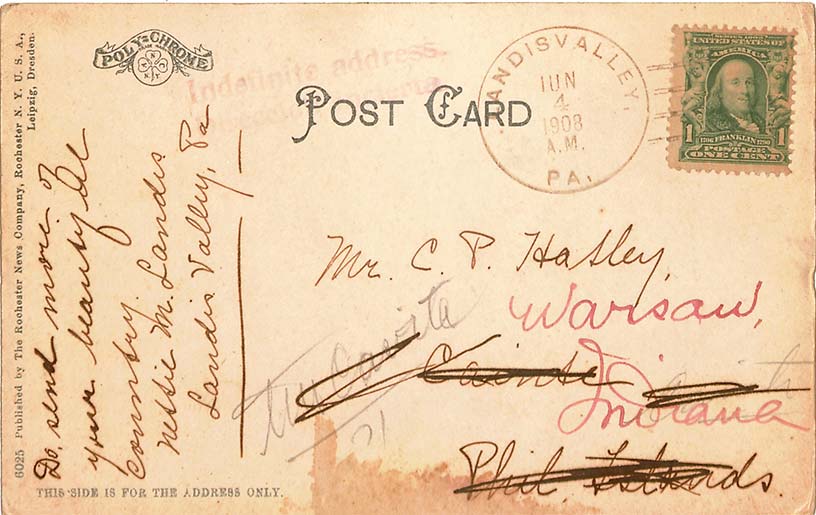 6025 Published by The Rochester News Company, Rochester N. Y. U. S. A.,
Leipzig, Dresden.
POLY=CHROME
Indefinite address.
POST CARD
LANDISVALLEY,
JUN
4
1908
A.M.
PA.
SERIES 1902
UNITED STATES OF
AMERICA
1 1
1706 FRANKLIN 1790
POSTAGE
ONE CENT
Do send more of
your beautyful
country.
Nettie M. Landis
Landis Valley, Pa
Mr. C. P. Hatley,
Warsaw,
Indiana
Cavite
Phil. Islands.
THIS SIDE IS FOR THE ADDRESS ONLY.